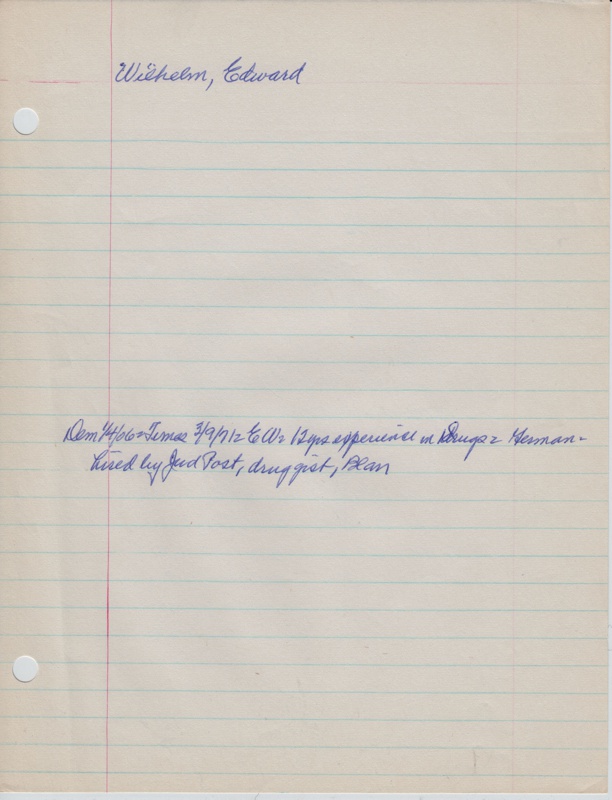 Wilhelm, Edward
Dem 1/4/06 = Times 3/9/71 = EW = 12 yrs experience in Drugs = German -
hired by Jud Post, druggist,